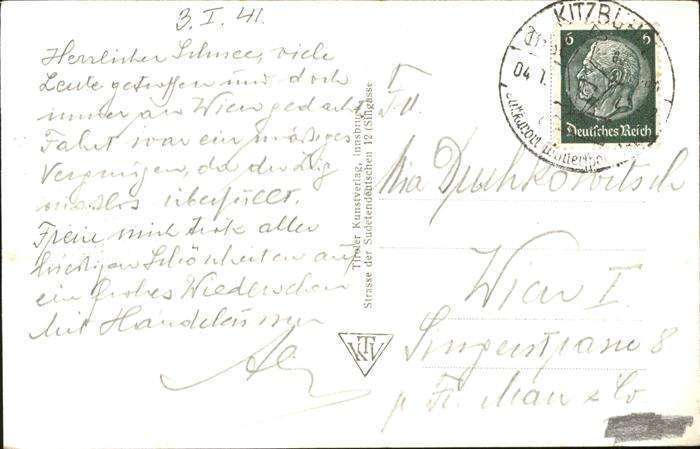 3. I. 41.
Herrlicher Schnee, viele
Leute getroffen und doch
immer an Wien gedacht
Fahrt war ein mäßiges
Vergnügen, da der Zug
maßlos überfüllt.
Freue mich trotz aller
hiesigen Schönheiten auf
ein frohes Wiedersehen
Mit Handkuss
Tiroler Kunstverlag, Innsbruck
Strasse der Sudetendeutschen 12 (Sillgasse
KTV
KITZBÜH
04.1.
6 6
Deutsches Reich
Frl.
Mia Duchkowitsch
Wien I.
Singerstrasse 8
Fr. Man & Co